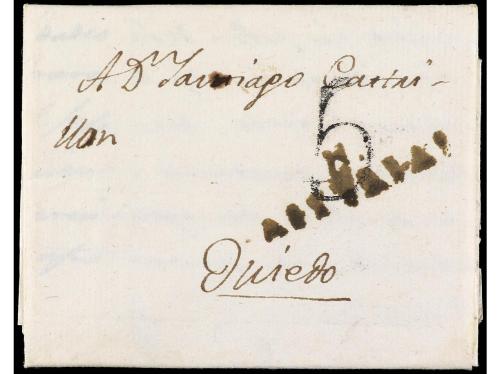 A Dn Santiago Castri-
llon
5
Oviedo